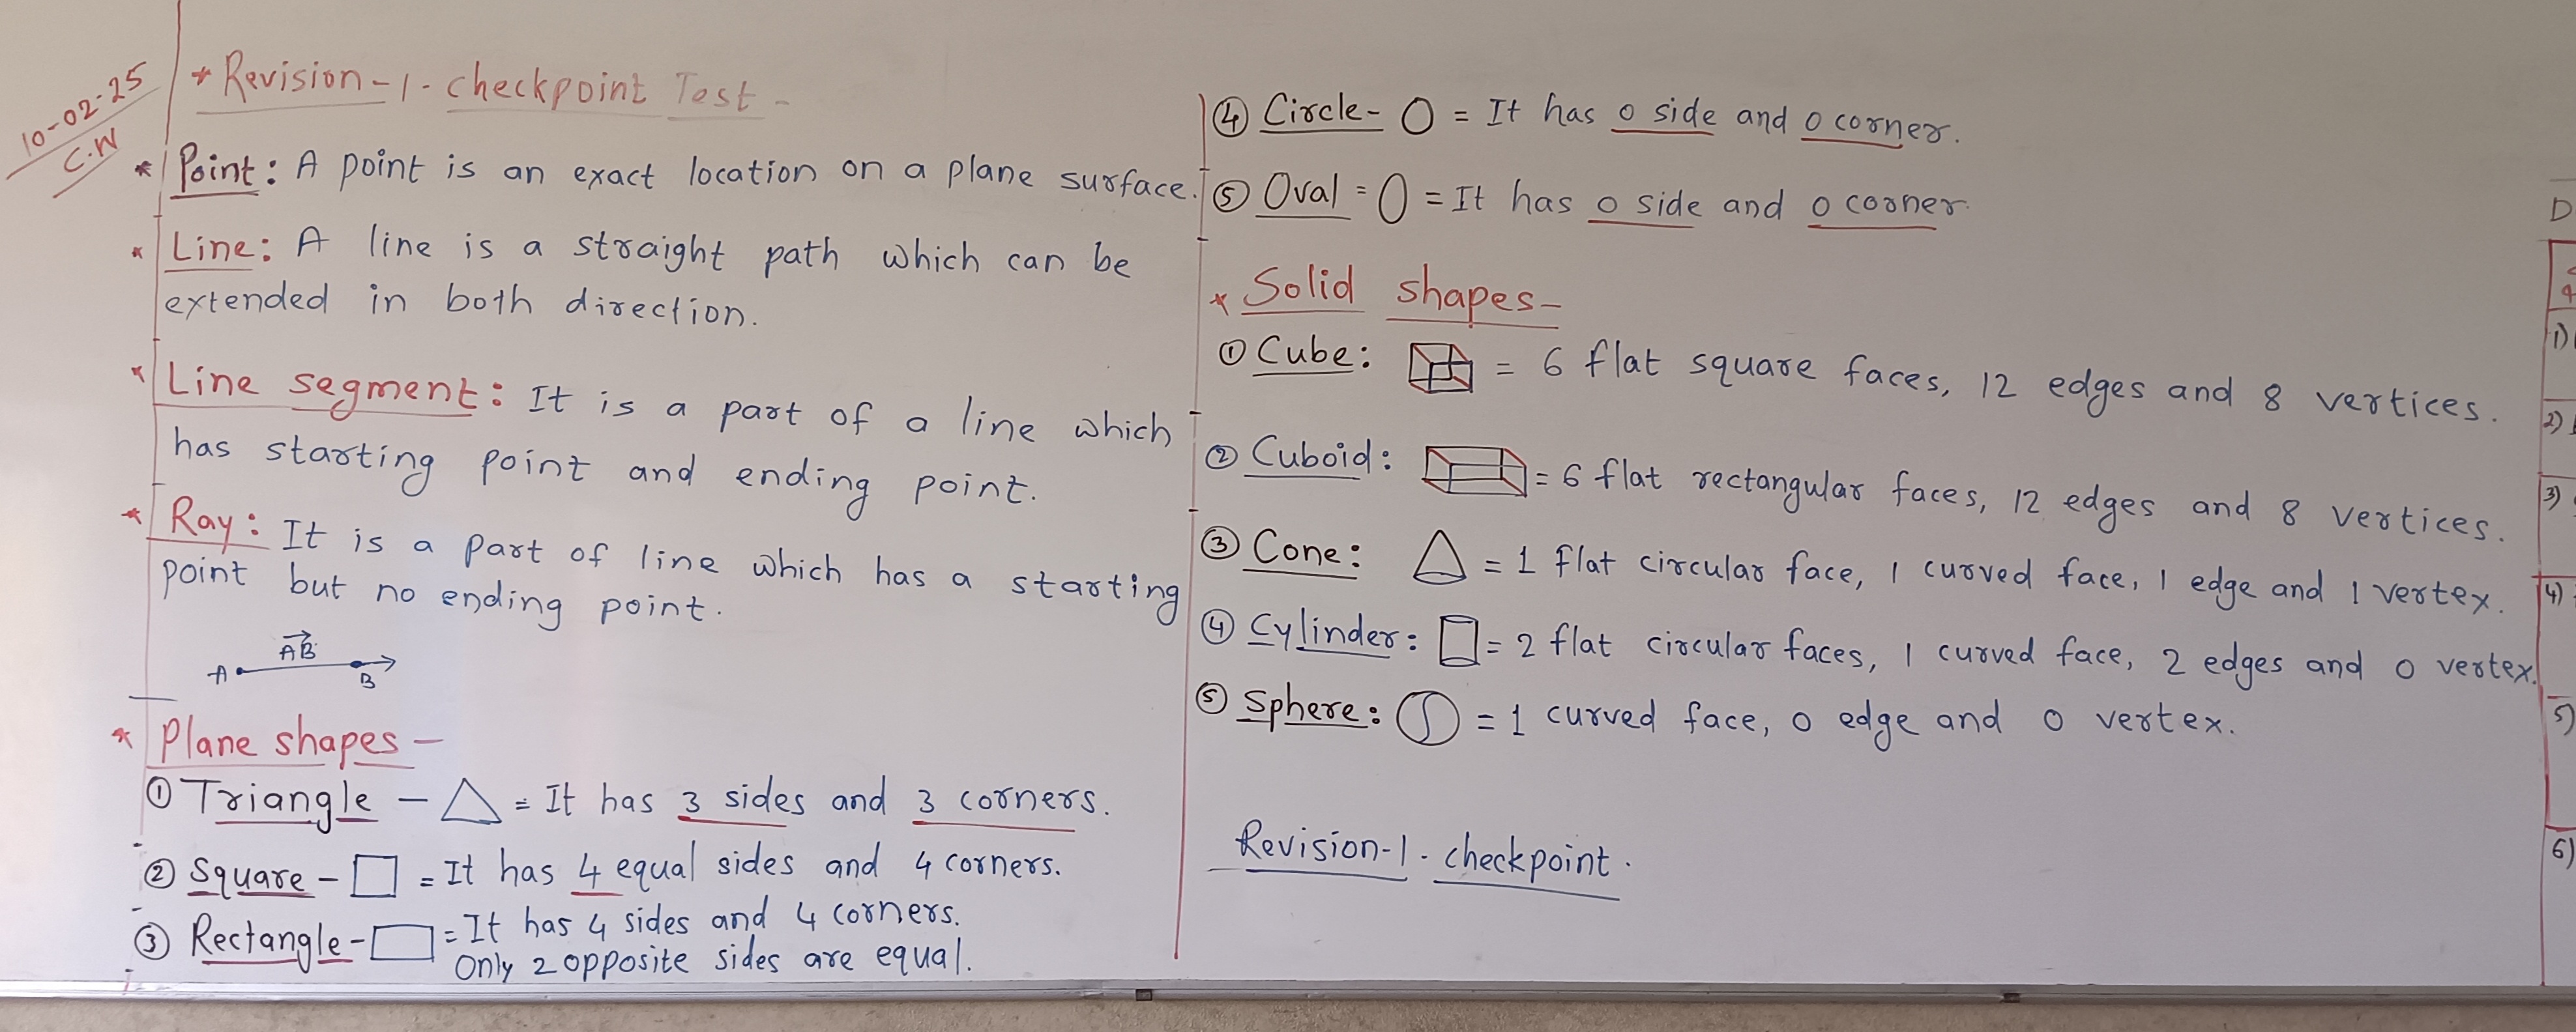 10-02-25
C.W
* Revision-1-checkpoint Test-
* Point: A point is an exact location on a plane surface.
* Line: A line is a straight path which can be
extended in both direction.
* Line segment: It is a part of a line which
has starting point and ending point.
* Ray: It is a part of line which has a starting
point but no ending point.
AB
A B
* Plane shapes-
① Triangle - = It has 3 sides and 3 corners.
② Square - = It has 4 equal sides and 4 corners.
③ Rectangle - = It has 4 sides and 4 corners.
Only 2 opposite sides are equal.
④ Circle- = It has 0 side and 0 corner.
⑤ Oval = = It has 0 side and 0 cooner
* Solid shapes-
① Cube: = 6 flat square faces, 12 edges and 8 vertices.
② Cuboid: = 6 flat rectangular faces, 12 edges and 8 vertices.
③ Cone: = 1 flat circular face, 1 curved face, 1 edge and 1 vertex.
④ Cylinder: = 2 flat circular faces, 1 curved face, 2 edges and 0 vertex.
⑤ Sphere: = 1 curved face, 0 edge and 0 vertex.
Revision-1-checkpoint.
D
1)
2)
3)
4)
5)
6)